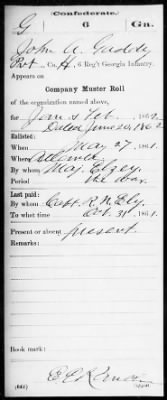 Confederate.
G 6 Ga.
John A. Gaddy
Pvt, Co. H, 6 Reg't Georgia Infantry.
Appears on
Company Muster Roll
of the organization named above,
for Jan & Feb, 1862.
Dated June 30, 1862
Enlisted:
When May 27, 1861.
Where Atlanta
By whom Maj. Elzey
Period the war.
Last paid:
By whom Capt. R. N. Ely,
To what time Oct. 31, 1861.
Present or absent present
Remarks:
Book mark:
(642)